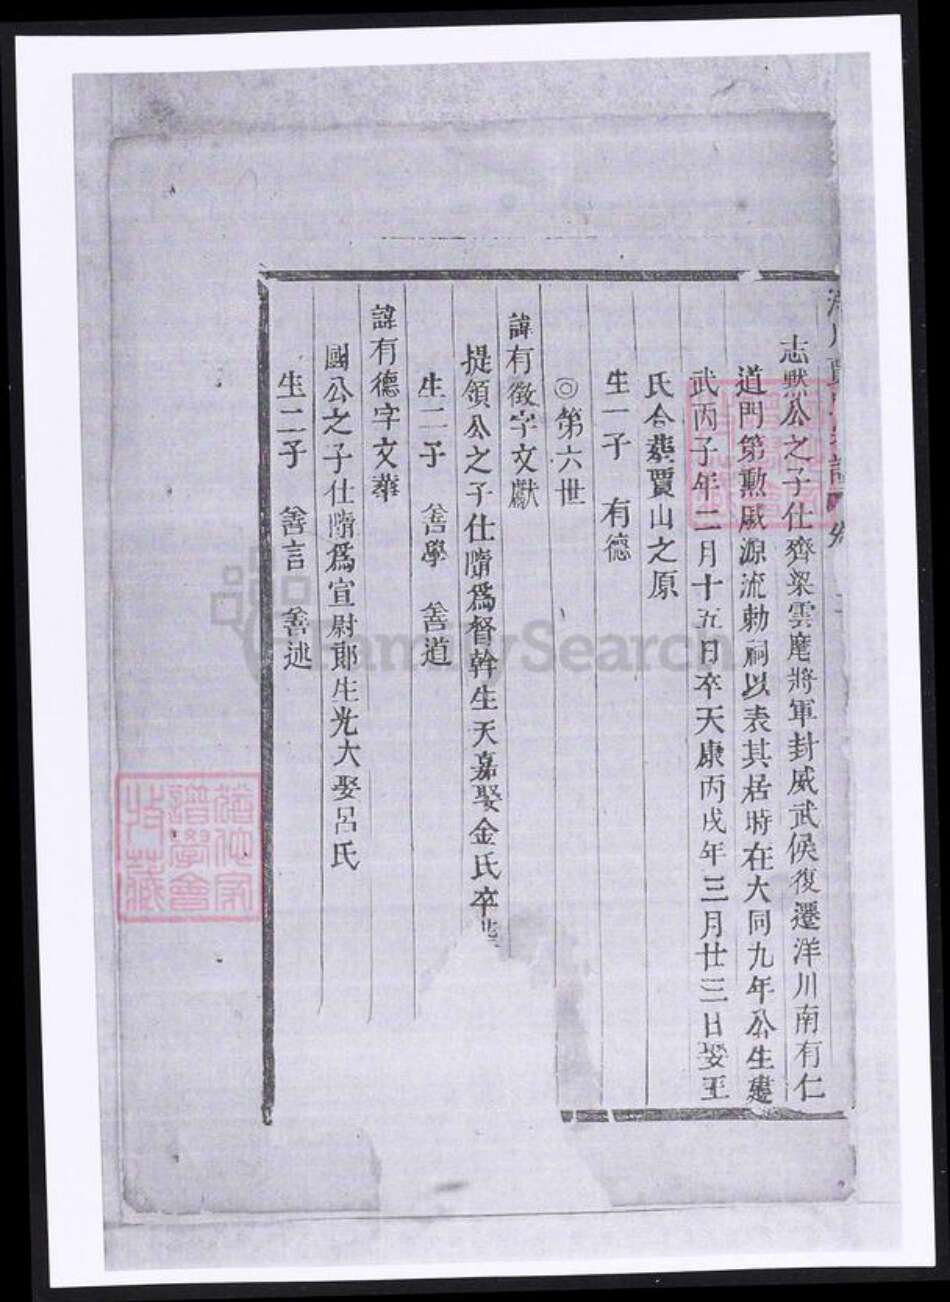 志默公之子仕齊梁雲麾將軍封威武侯復遷洋川南有仁
道門第勳戚源流勅祠以表其居時在大同九年公生建
武丙子年二月十五日卒天康丙戌年三月廿三日娶王
氏合葬賈山之原
生一子 有德
◎第六世
諱有徵字文獻
提領公之子仕隋爲督幹生天嘉娶金氏卒
生二子 善學 善道
諱有德字文華
國公之子仕隋爲宣尉郎生光大娶呂氏
生二子 善言 善述
譜學會
收藏
FamilySearch